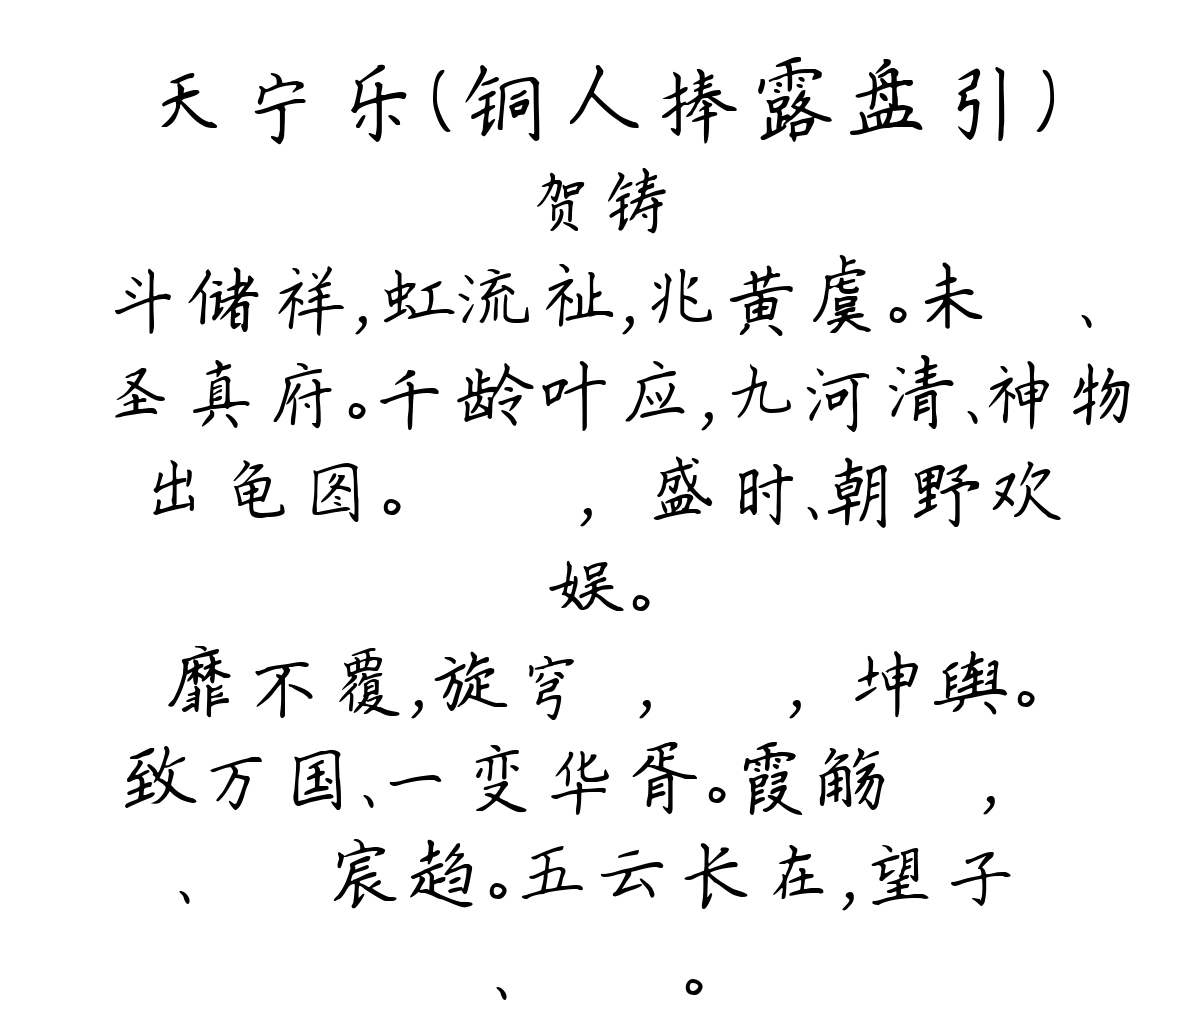 天宁乐(铜人捧露盘引)
贺铸
斗储祥,虹流祉,兆黄虞。未 、
圣真府。千龄叶应,九河清、神物
出龟图。 ,盛时、朝野欢
娱。
靡不覆,旋穹 , ,坤舆。
致万国、一变华胥。霞觞 ,
、 宸趋。五云长在,望子
、 。